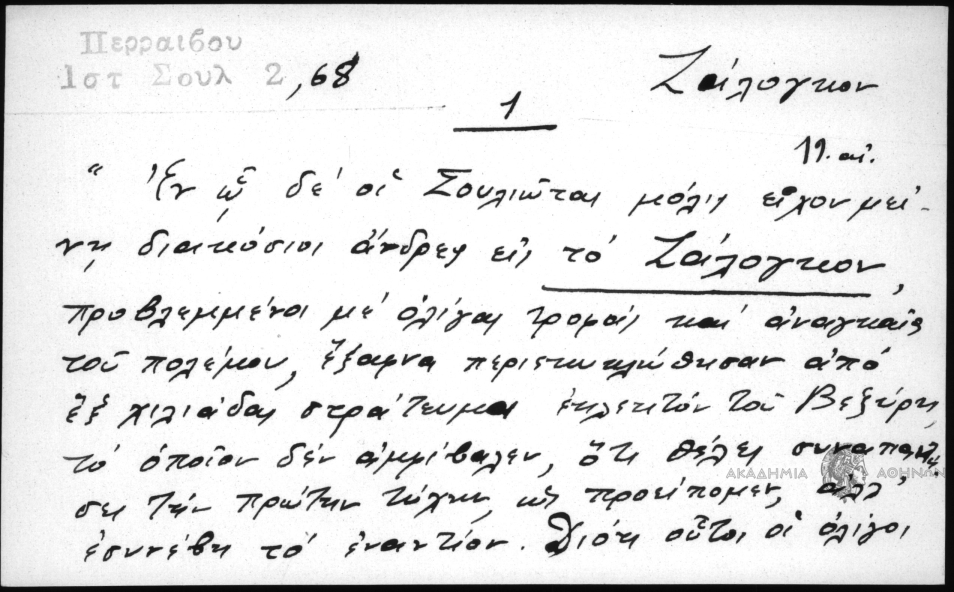 Περραιβου
Ιστ Σουλ 2,68
Ζάλογκον
1
19. αἰ.
" Ἐν ᾧ δέ οἱ Σουλιῶται μόλις εἶχον μεί-
νῃ διακόσιοι ἄνδρες εἰς τό Ζάλογκον,
προβλεμμένοι μέ ὀλίγας τροφάς καί ἀναγκαῖα
τοῦ πολέμου, ἔξαφνα περιεκυκλώθησαν ἀπό
ἕξ χιλιάδας στράτευμα ἐκλεκτόν τοῦ Βεζύρη,
τό ὁποῖον δέν ἀμφίβαλεν, ὅτι θέλει συναπαντή
ΑΚΑΔΗΜΙΑ ΑΘΗΝΩΝ
σει τήν πρώτην τύχην, ὡς προείπομεν, ἀλλ'
ἐσυνέβη τό ἐναντίον. Διότι οὗτοι οἱ ὀλίγοι